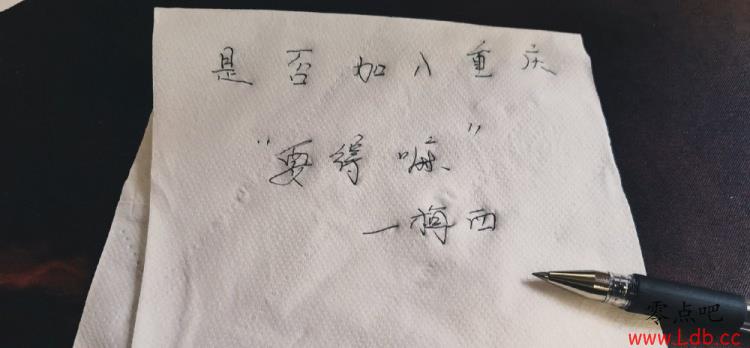 是否加入重庆
"要得嘛"
—梅西
零点吧
www.Ldb.cc